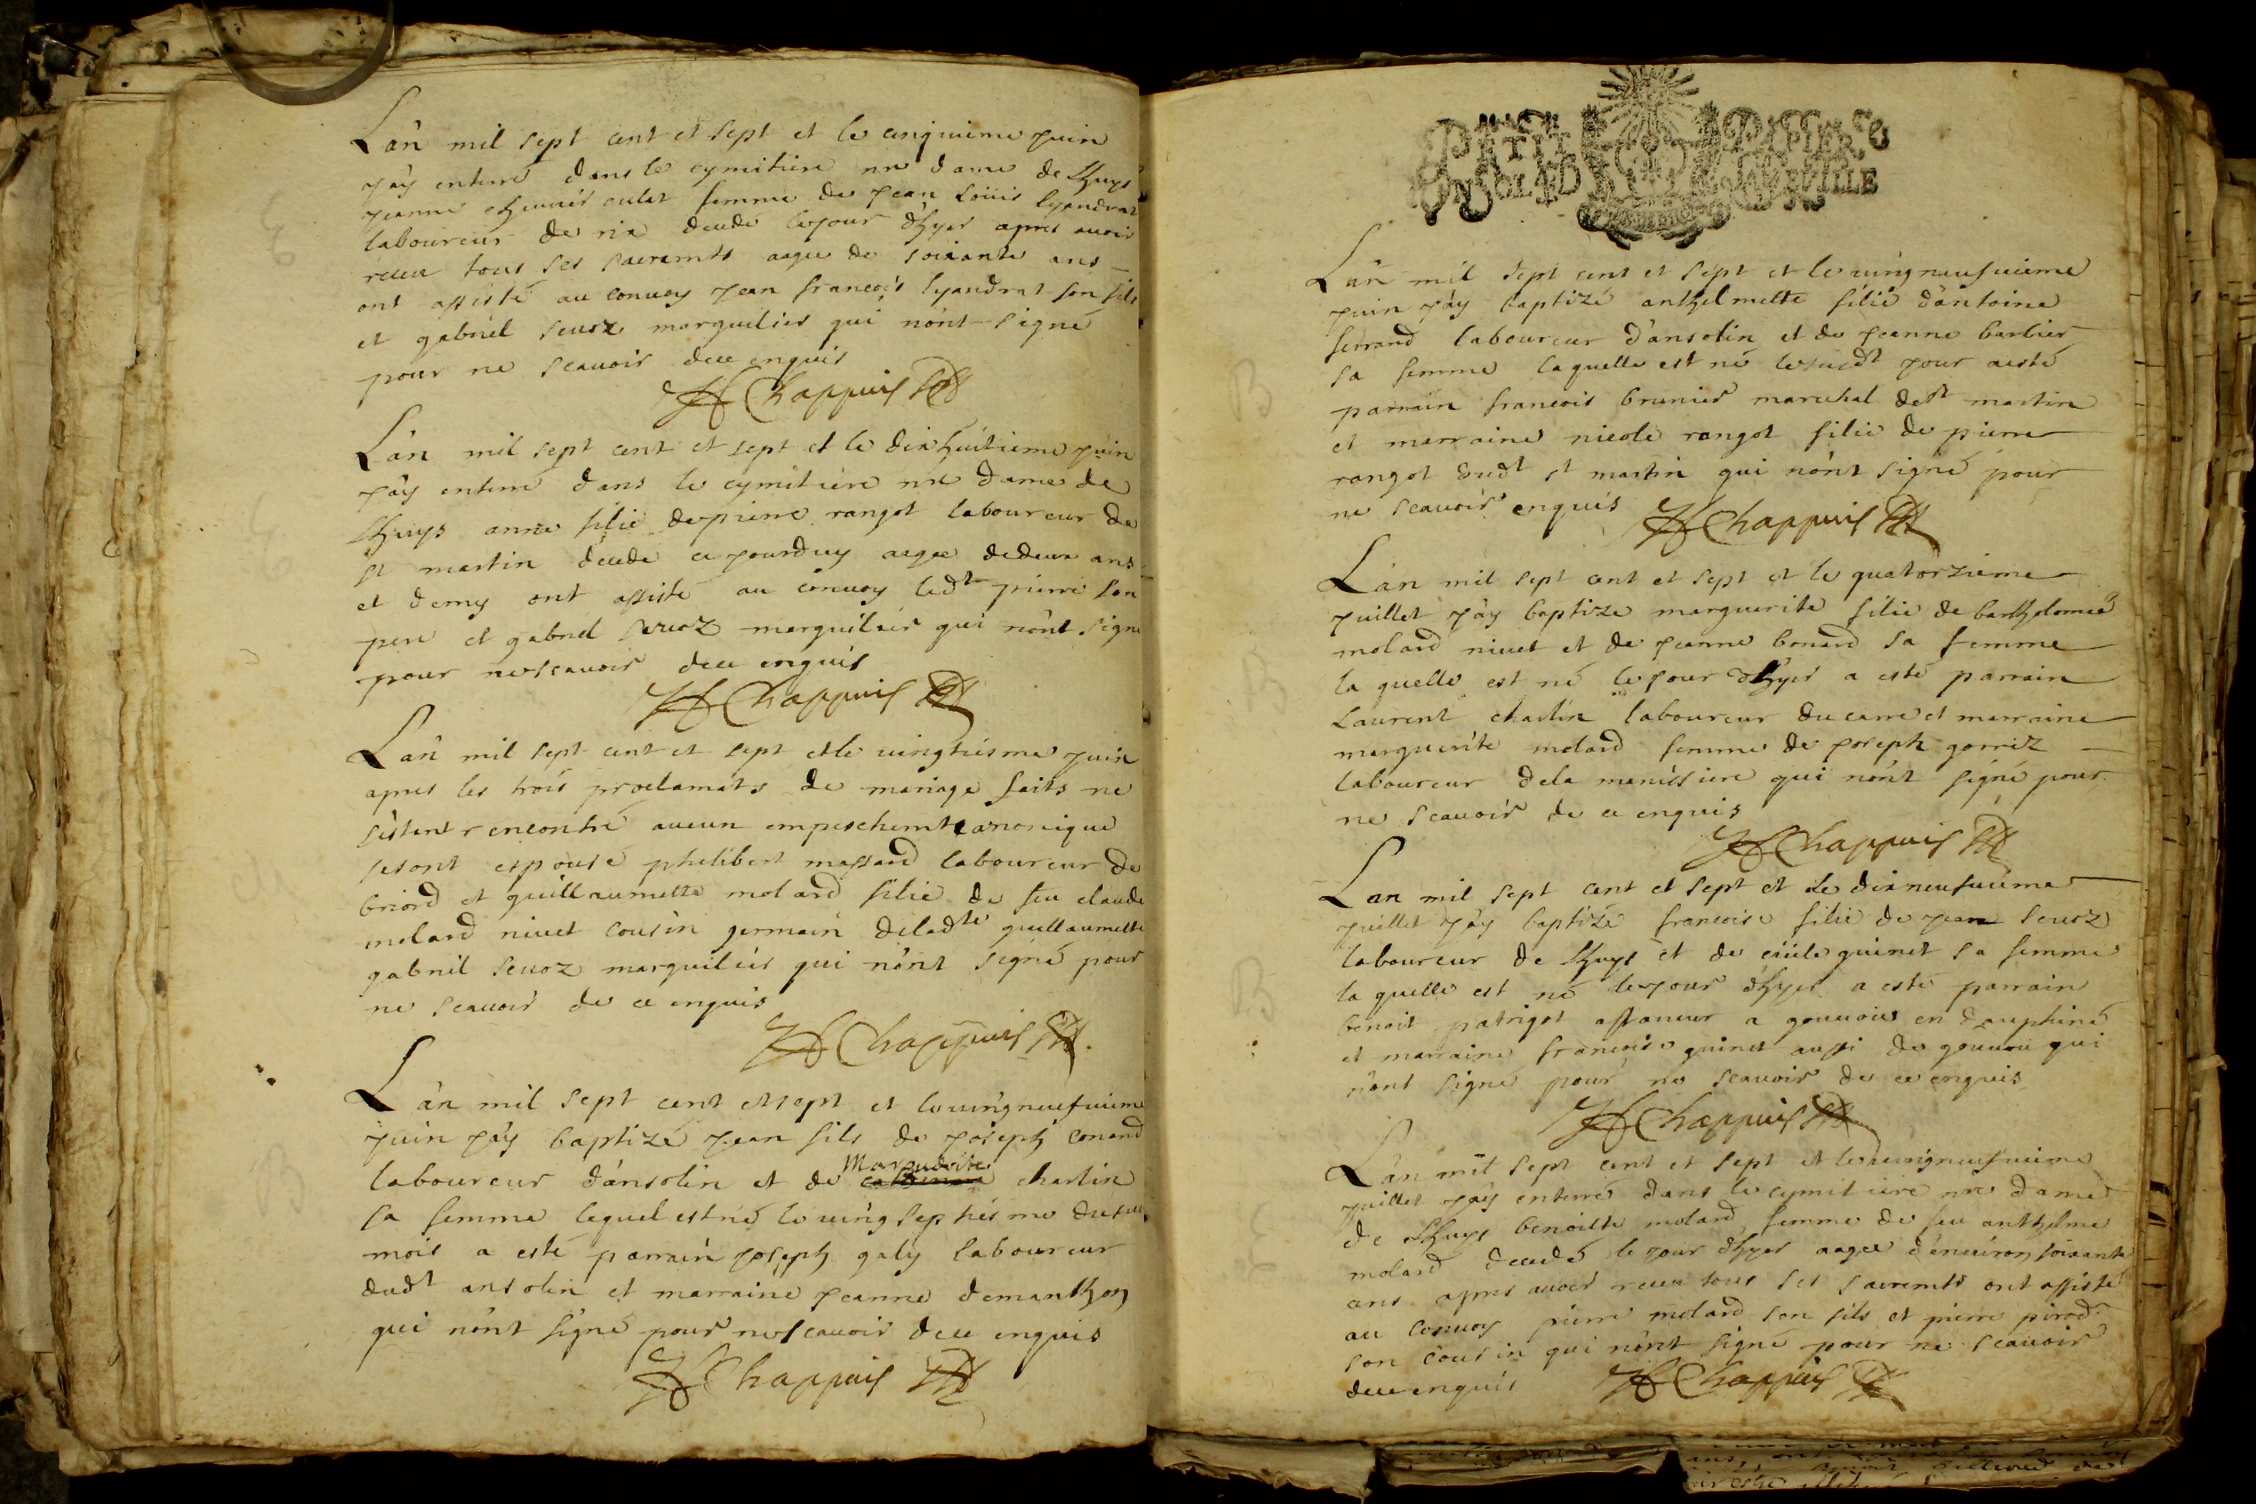 Lan mil sept cent et sept et le cinquieme juin
j'ay enterré dans le cymitiere nre dame de Lhuys
jeanne femme de jean Loüis lyandrat
laboureur de rix decedé le jour d'hyer apres avoir
receu tous ses sacremts aagee de soixante ans
ont assisté au convoy jean francois lyandrat son fils
et gabriel seuoz marguilier qui n'ont signé
pour ne scauoir de ce enquis
Chappuis
Lan mil sept cent et sept et le dix huitieme juin
j'ay enterré dans le cymitiere nre dame de
Lhuys anne fille de pierre rangot laboureur de
st martin decedé ce jourduy aagee de deux ans
et demy ont assisté au convoy ledt pierre son
pere et gabriel seruoz marguilier qui n'ont signé
pour ne scauoir de ce enquis
Chappuis
Lan mil sept cent et sept et le vingtiesme juin
apres les trois proclamats de mariage faits ne
s'estent rencontré aucun empeschemt canonique
se sont espousé philibert massard laboureur de
briord et guillaumette molard fille de feu claude
molard nivet cousin germain de ladte guillaumette
gabriel seuoz marguilier qui n'ont signé pour
ne scauoir de ce enquis
Chappuis
Lan mil sept cent et sept et le vingneufuieme
juin j'ay baptizé jean fils de joseph conand
Marguerite
laboureur d'ansolin et de charlin
sa femme lequel est né le vingseptiesme du
mois a esté parrain joseph galy laboureur
dudt ansolin et marraine jeanne demanthon
qui n'ont signé pour ne scauoir de ce enquis
Chappuis
PETIT PAPIER
Lan mil sept cent et sept et le vingneufuieme
juin j'ay baptizé anthelmette fille d'antoine
ferrand laboureur d'ansolin et de jeanne barlier
sa femme laquelle est né le susdt jour a esté
parrain francois brunier marechal de st martin
et marraine nicole rangot fille de pierre
rangot dudt st martin qui n'ont signé pour
ne scauoir enquis
Chappuis
Lan mil sept cent et sept et le quatorzieme
juillet j'ay baptizé marguerite fille de barthelemie
molard nivet et de jeanne bonard sa femme
la quelle est né le jour d'hyer a esté parrain
Laurent charlin laboureur du et marraine
marguerite molard femme de joseph gorriz
laboureur de la manissiere qui n'ont signé pour
ne scauoir de ce enquis
Chappuis
Lan mil sept cent et sept et le dixneufuieme
juillet j'ay baptizé francoise fille de jean seuoz
laboureur de Lhuys et de guinet sa femme
la quelle est né le jour d'hyer a esté parrain
benoit patrigot a gouuoux en dauphiné
et marraine francoise guinet aussi de gouuou qui
n'ont signé pour ne scauoir de ce enquis
Chappuis
Lan mil sept cent et sept et le vingneufuieme
juillet j'ay enterré dans le cymitiere nre dame
de Lhuys benoitte molard femme de feu anthelme
molard decedé le jour d'hyer aagee d'enuiron soixante
ans apres avoir receu tous ses sacremts ont assisté
au conuoy pierre molard son fils et pierre pirod
son cousin qui n'ont signé pour ne scauoir
de ce enquis
Chappuis